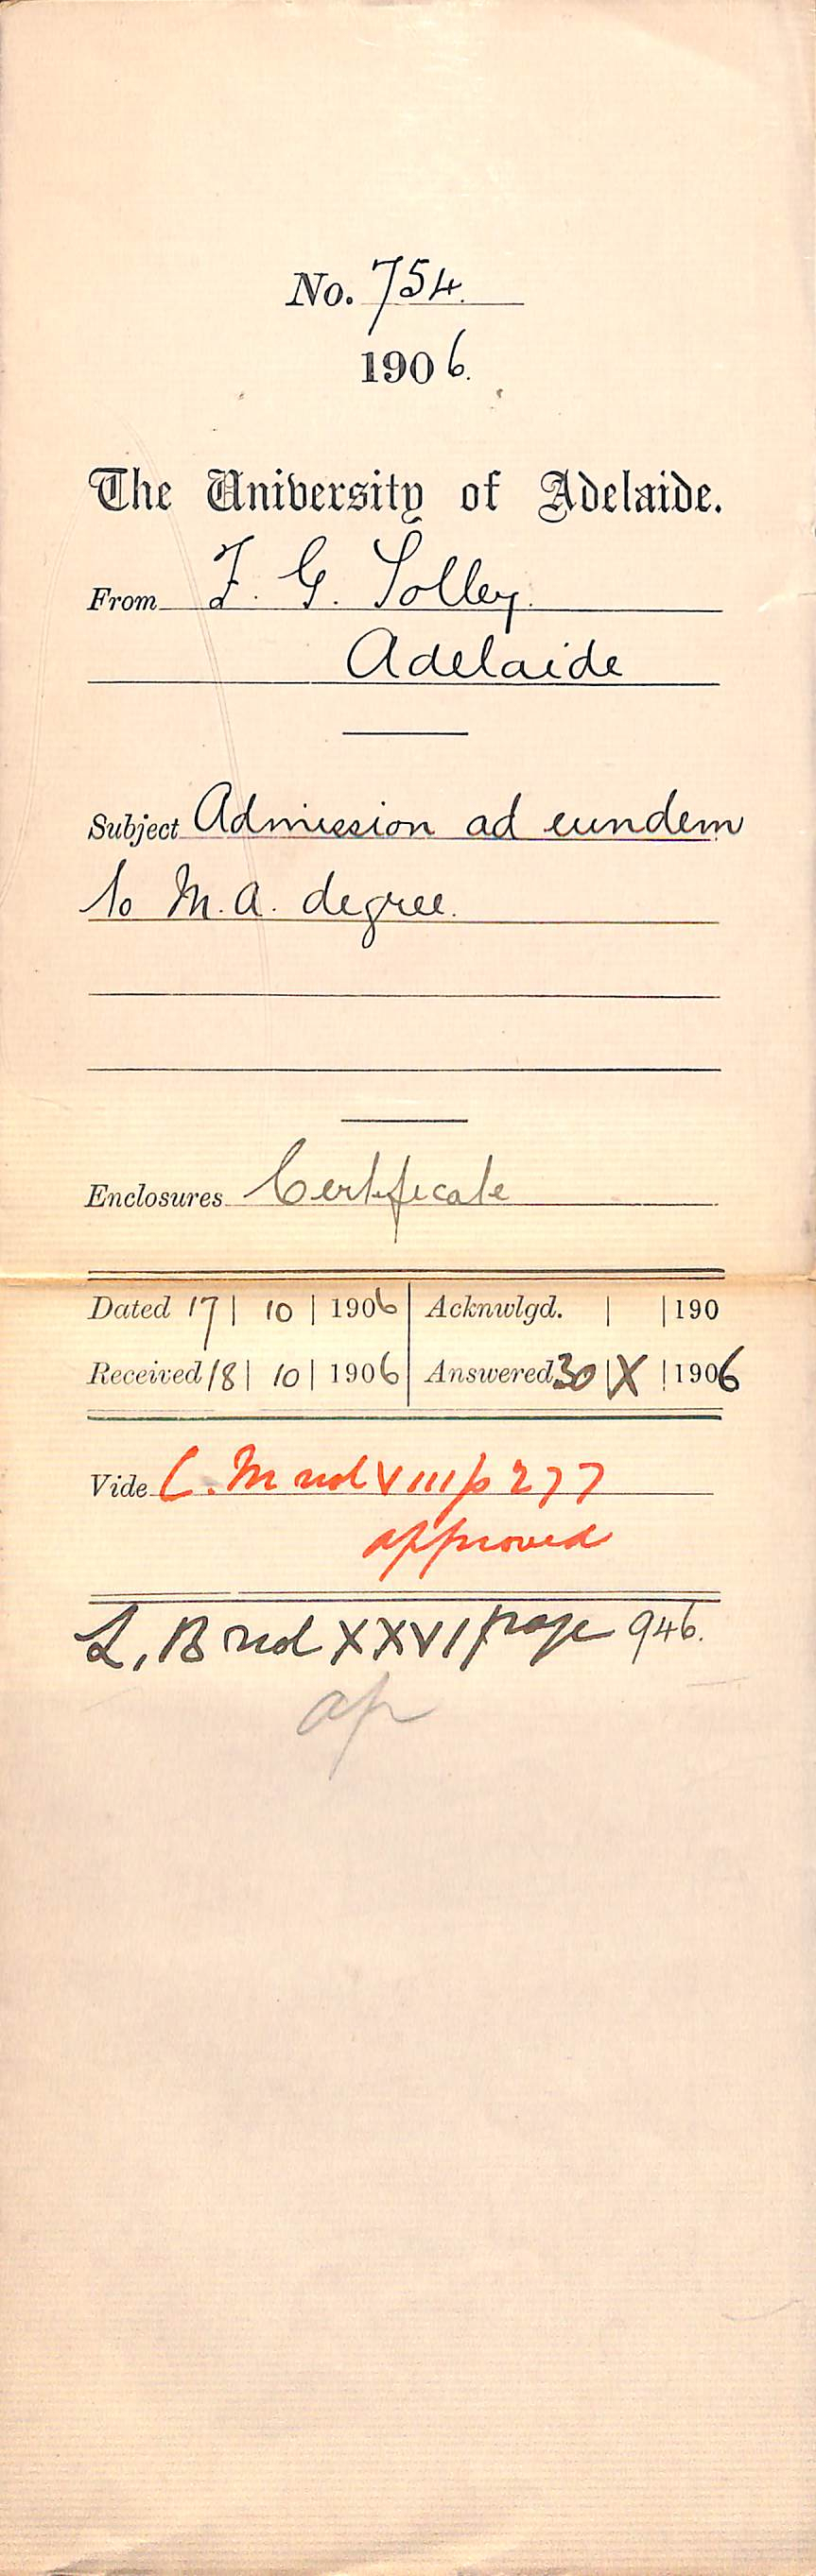 No. 754.
1906.
The University of Adelaide.
From F. G. Tolley.
Adelaide
Subject Admission ad eundem
to M.A. degree.
Enclosures Certificate
Dated 17 | 10 | 1906 Acknwlgd. | | 190
Received 18 | 10 | 1906 Answered 30 | X | 1906
Vide C. M vol VIII p 277
approved
L, B vol XXVI page 946.